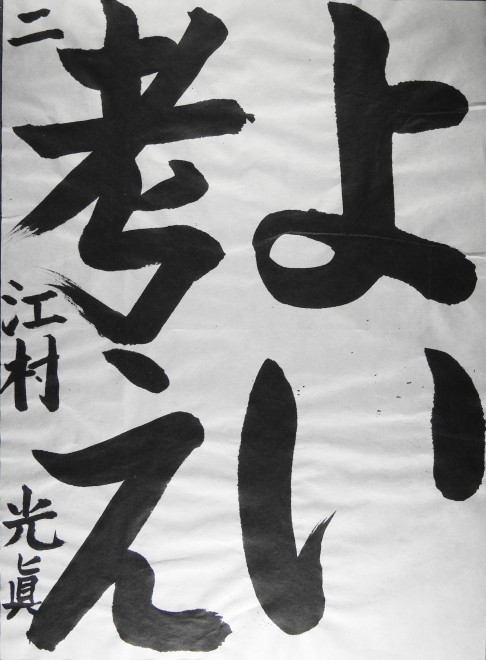 よい
考え
二 江村 光眞